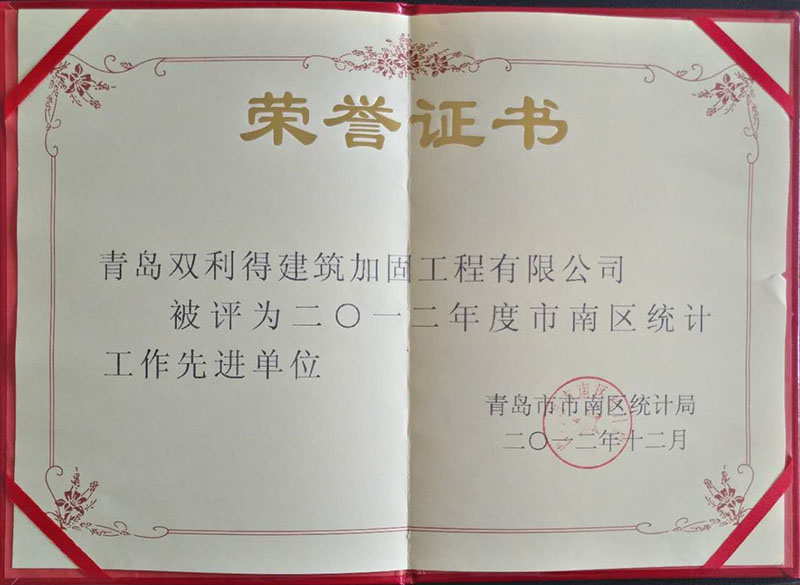 荣誉证书
青岛双利得建筑加固工程有限公司
被评为二〇一二年度市南区统计
工作先进单位
青岛市市南区统计局
二〇一二年十二月